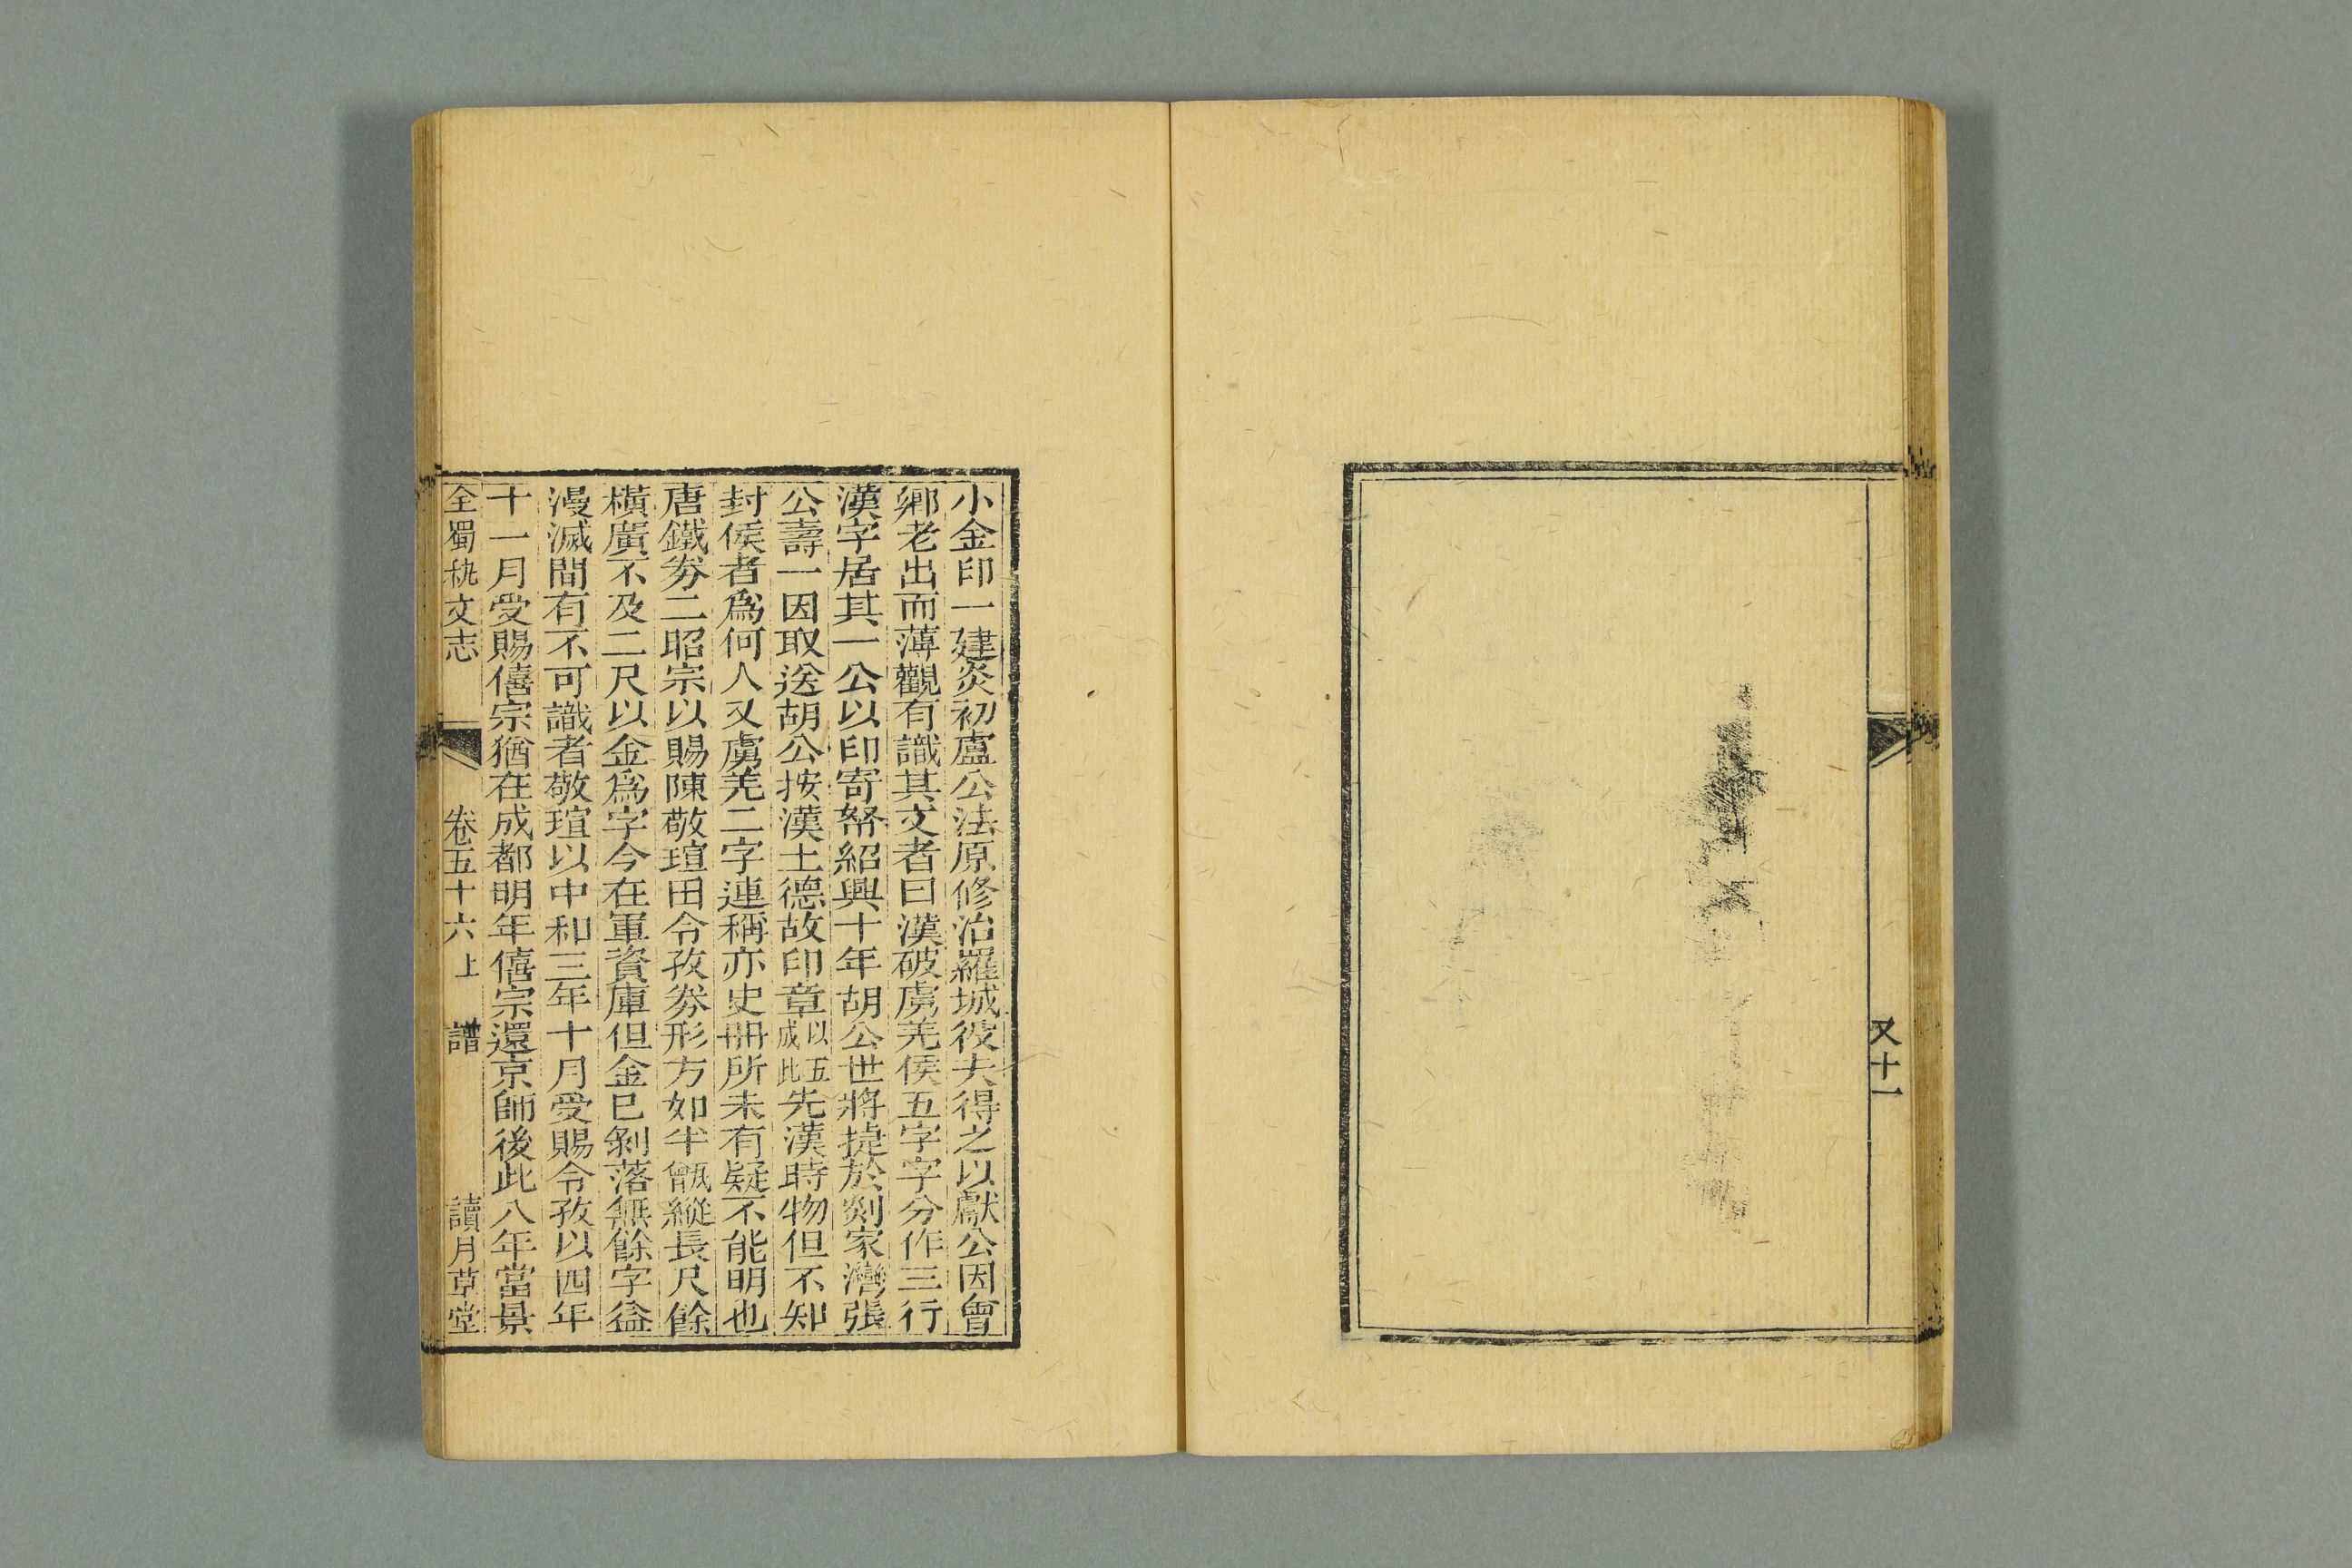 又十一
小金印一建炎初盧公法原修治羅城役夫得之以獻公因會
鄉老出而薄觀有識其文者曰漢破虜羌侯五字字分作三行
漢字居其一公以印寄帑紹興十年胡公世將提於剡家灣張
公壽一因取送胡公按漢土德故印章以五成此先漢時物但不知
封侯者爲何人又虜羌二字連稱亦史册所未有疑不能明也
唐鐵券二昭宗以賜陳敬瑄田令孜券形方如半甑縱長尺餘
橫廣不及二尺以金爲字今在軍資庫但金已剝落無餘字益
漫滅間有不可識者敬瑄以中和三年十月受賜令孜以四年
十一月受賜僖宗猶在成都明年僖宗還京師後此八年當景
全蜀秇文志 卷五十六上 譜 讀月草堂